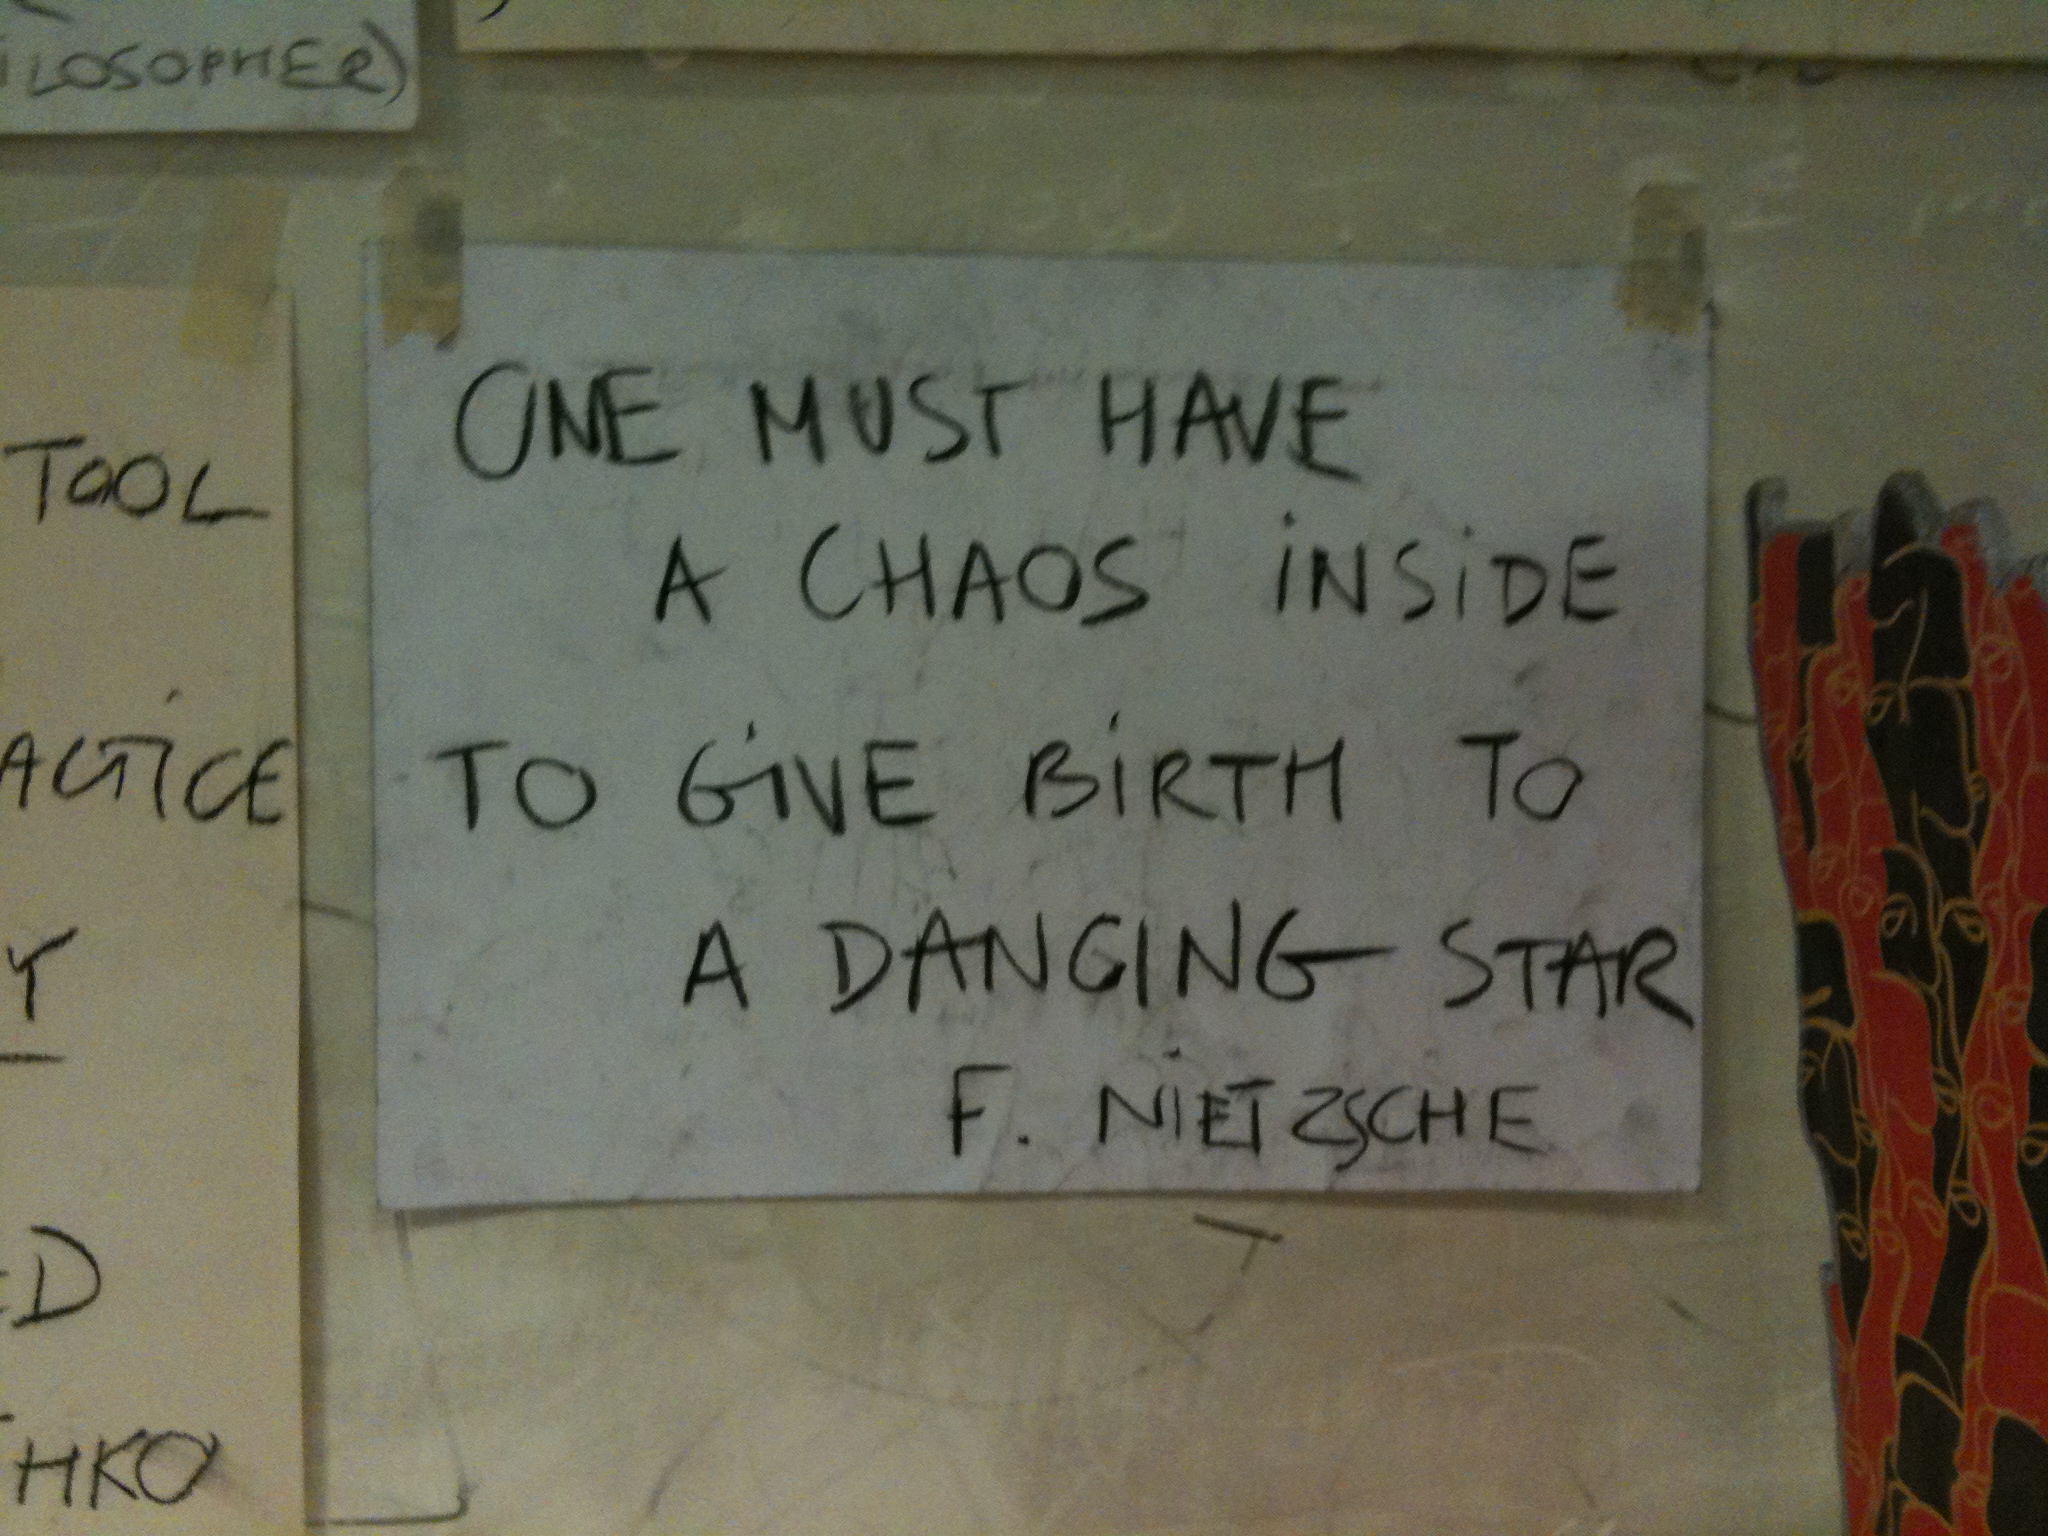 ILOSOPHER)
TOOL
ACTiCE
Y
ED
THKO
ONE MUST HAVE
A CHAOS iNSiDE
TO GiVE BiRTH TO
A DANCING STAR
F. NiETZSCHE